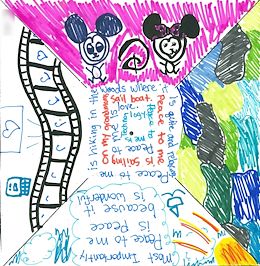 Peace to me
is hiking in the
woods where
it is quite and relaxing
peace to me
is sailing
on my grandparents
sail boat.
Peace to
me is
love.
Most Importantly
Peace to me
is Peace
because it
is wonderful